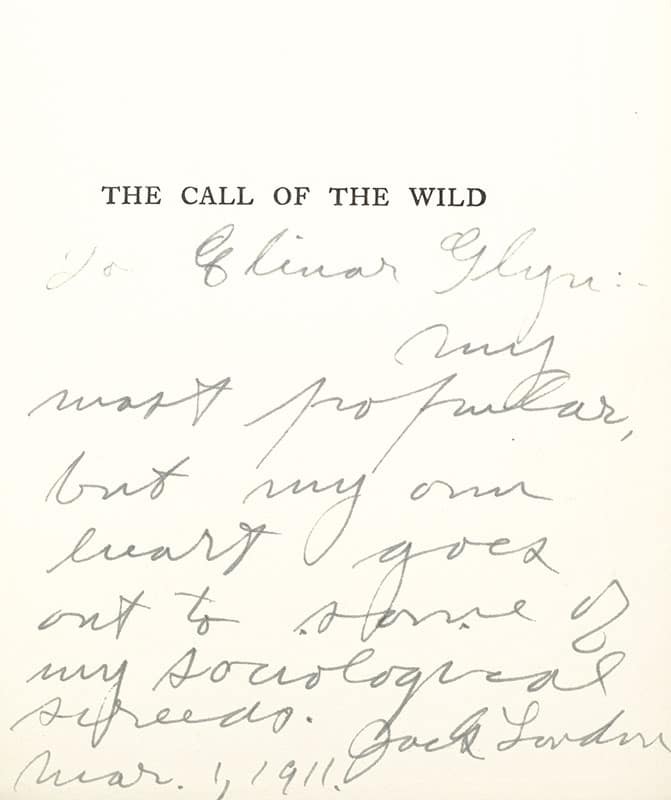 THE CALL OF THE WILD
To Elinor Glyn:-
my
most popular,
but my own
heart goes
out to some of
my sociological
screeds.
Jack London
Mar. 1, 1911.